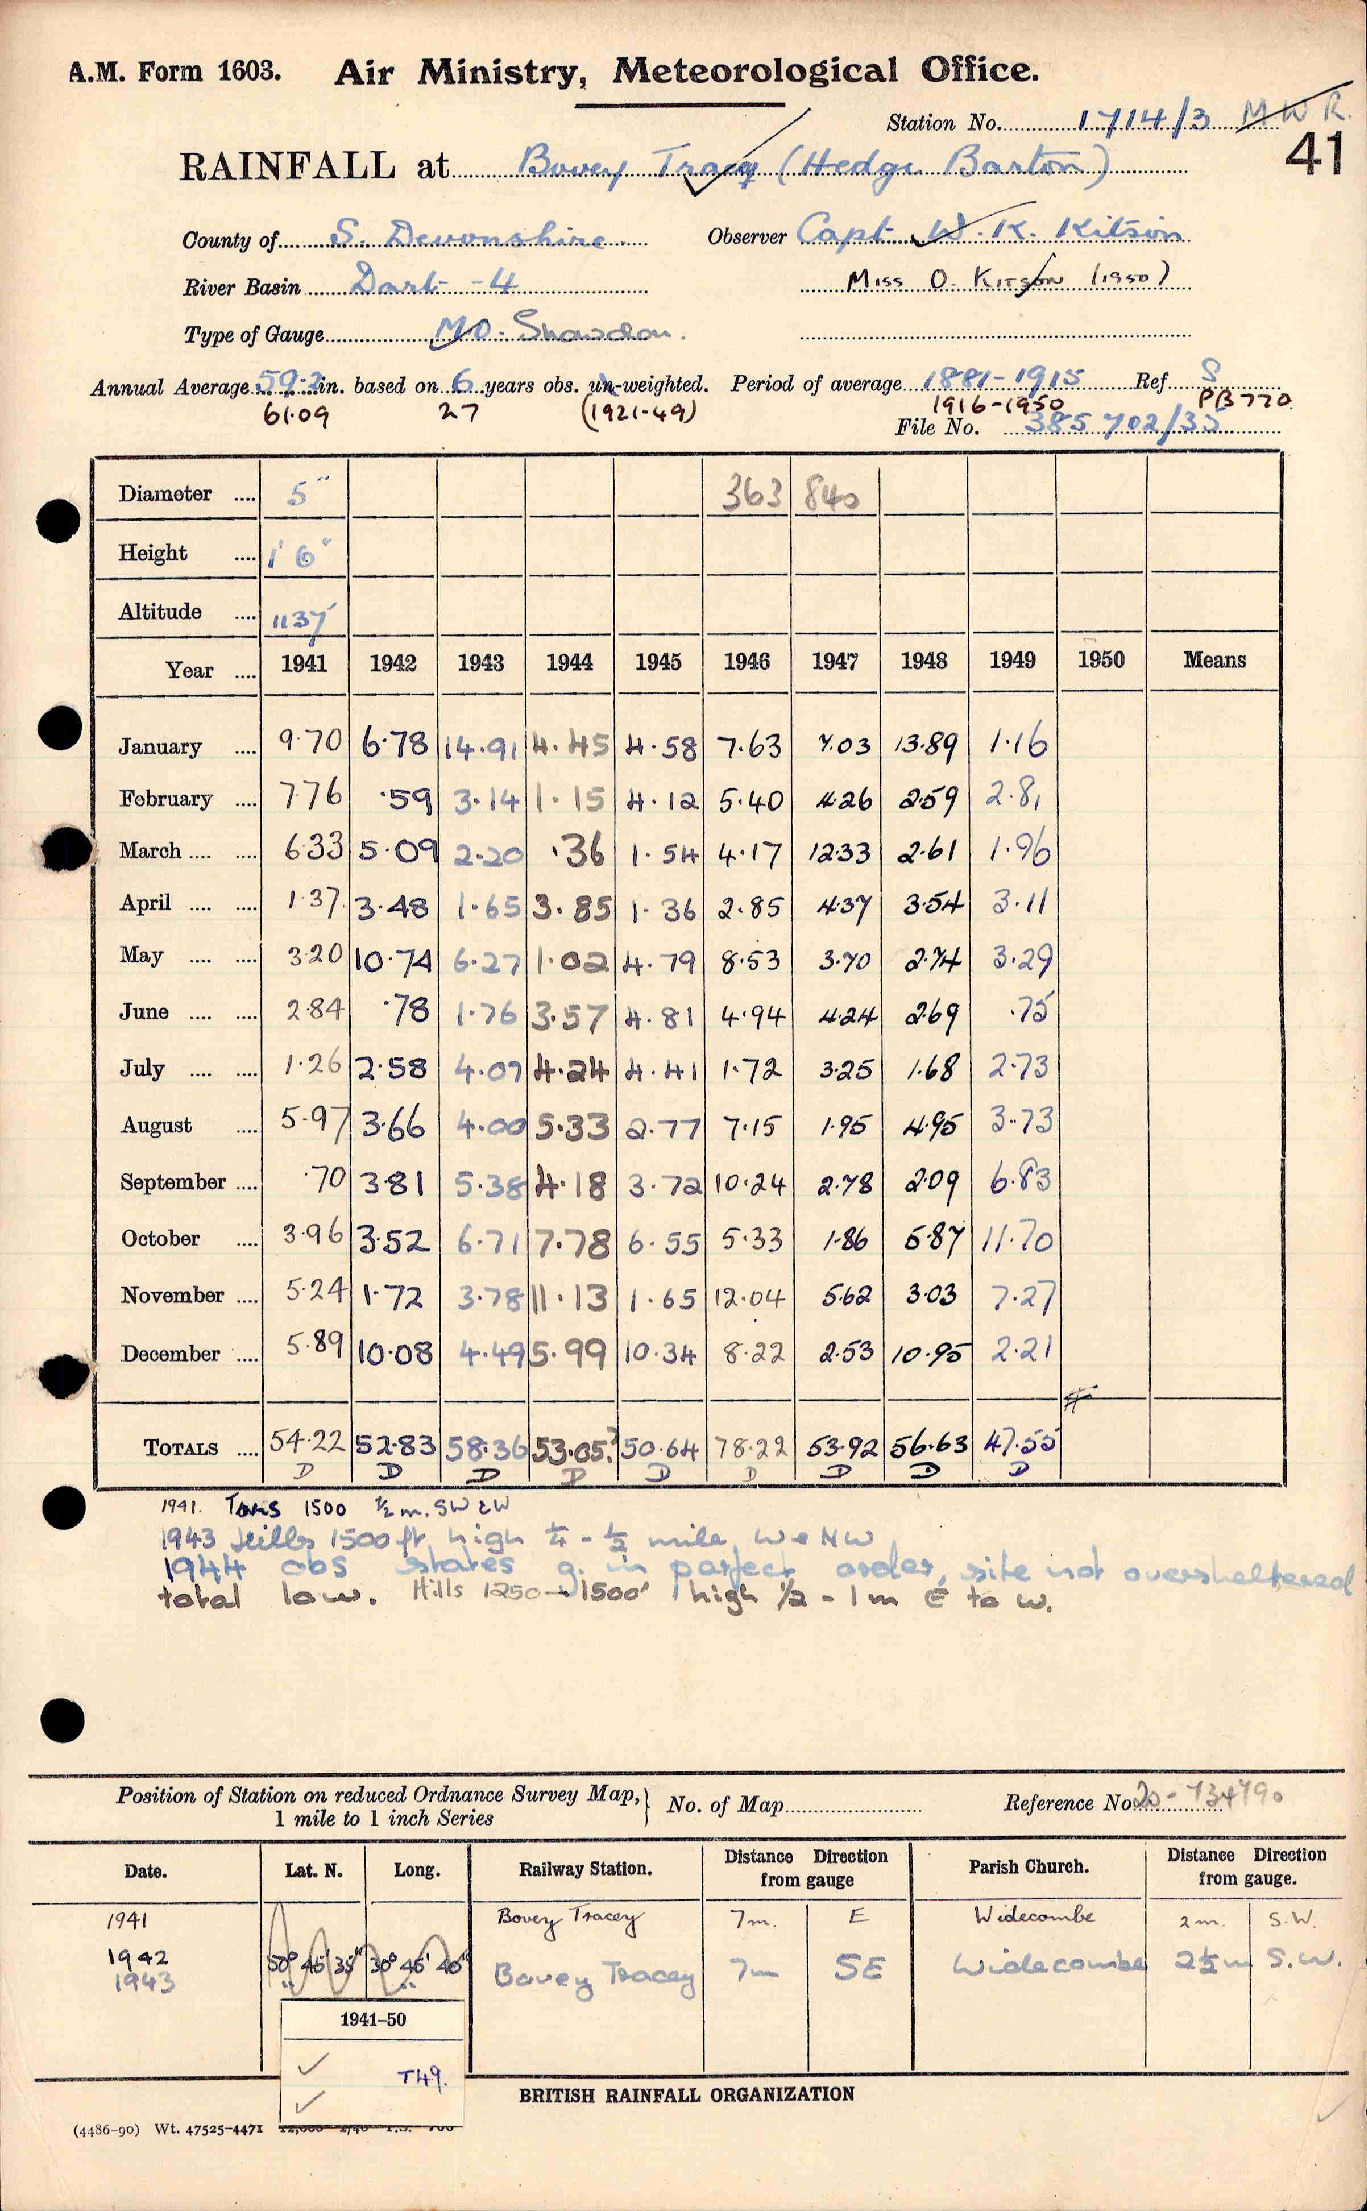 A.M. Form 1603. Air Ministry, Meteorological Office.
Station No. 1714/3 M W R.
41
RAINFALL at Bovey Tracey (Hedge Barton)
County of S. Devonshire. Observer Capt. W. K. Kitson
River Basin Dart -4 Miss O. Kitson (1950)
Type of Gauge MO. Snowdon.
Annual Average 59.2 in. based on 6 years obs. un-weighted. Period of average 1881-1915 Ref S
61.09 27 (1921-49) 1916-1950 PB770
File No. 385702/35
Diameter .... 5" 363 840
Height .... 1' 6"
Altitude .... 1137
Year .... 1941 1942 1943 1944 1945 1946 1947 1948 1949 1950 Means
January .... 9.70 6.78 14.91 4.45 4.58 7.63 7.03 13.89 1.16
February .... 7.76 .59 3.14 1.15 4.12 5.40 4.26 2.59 2.81
March .... .... 6.33 5.09 2.20 .36 1.54 4.17 12.33 2.61 1.96
April .... .... 1.37 3.48 1.65 3.85 1.36 2.85 4.37 3.54 3.11
May .... .... 3.20 10.74 6.27 1.02 4.79 8.53 3.70 2.74 3.29
June .... .... 2.84 .78 1.76 3.57 4.81 4.94 4.24 2.69 .75
July .... .... 1.26 2.58 4.07 4.24 4.41 1.72 3.25 1.68 2.73
August .... 5.97 3.66 4.00 5.33 2.77 7.15 1.95 4.95 3.73
September .... .70 3.81 5.38 4.18 3.72 10.24 2.78 2.09 6.83
October .... 3.96 3.52 6.71 7.78 6.55 5.33 1.86 5.87 11.70
November .... 5.24 1.72 3.78 11.13 1.65 12.04 5.62 3.03 7.27
December .... 5.89 10.08 4.49 5.99 10.34 8.22 2.53 10.95 2.21
TOTALS .... 54.22 52.83 58.36 53.05? 50.64 78.22 53.92 56.63 47.55
D D D D D D D D D
1941. Tors 1500 1/2 m. SW & W
1943 Hills 1500 ft high 1/4 - 1/2 mile W & NW
1944 obs states g. in perfect order, site not oversheltered
total low. Hills 1250-1500' high 1/2 - 1 m E to W.
Position of Station on reduced Ordnance Survey Map, 1 mile to 1 inch Series } No. of Map Reference No 20-734790
Date. Lat. N. Long. Railway Station. Distance Direction from gauge Parish Church. Distance Direction from gauge.
1941 Bovey Tracey 7m. E Widecombe 2m. S.W.
1942 50° 46' 35" 30° 46' 40"
1943 Bovey Tracey 7m SE Widecombe 2½m S.W.
1941-50
T49.
BRITISH RAINFALL ORGANIZATION
(4486-90) Wt. 47525-4471